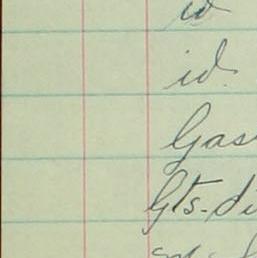 id
id.
Gas
Gts-di